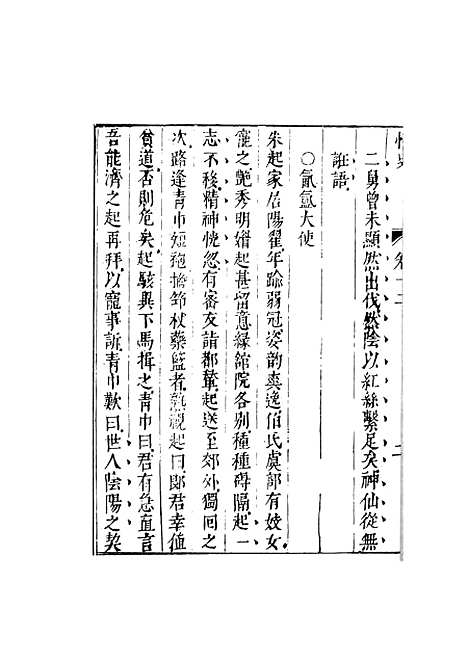 情史 卷十二 二
二舅曾未顯然出伐然陰以紅絲繫足矣神仙從無
誑語
○氤氳大使
朱起家居陽翟年踰弱冠姿韵爽逸伯氏虞部有妓女
寵之艷秀明婚起甚留意緣舘院各別種種碍隔起一
志不移精神恍忽有密友詣都輦起送至郊外獨回之
次路逢青巾短袍擔節杖藥籃者熟視起曰郎君幸值
貧道否則危矣起駭異下馬揖之青巾曰君有急直言
吾能濟之起再拜以寵事訴青巾歎曰世人陰陽之契